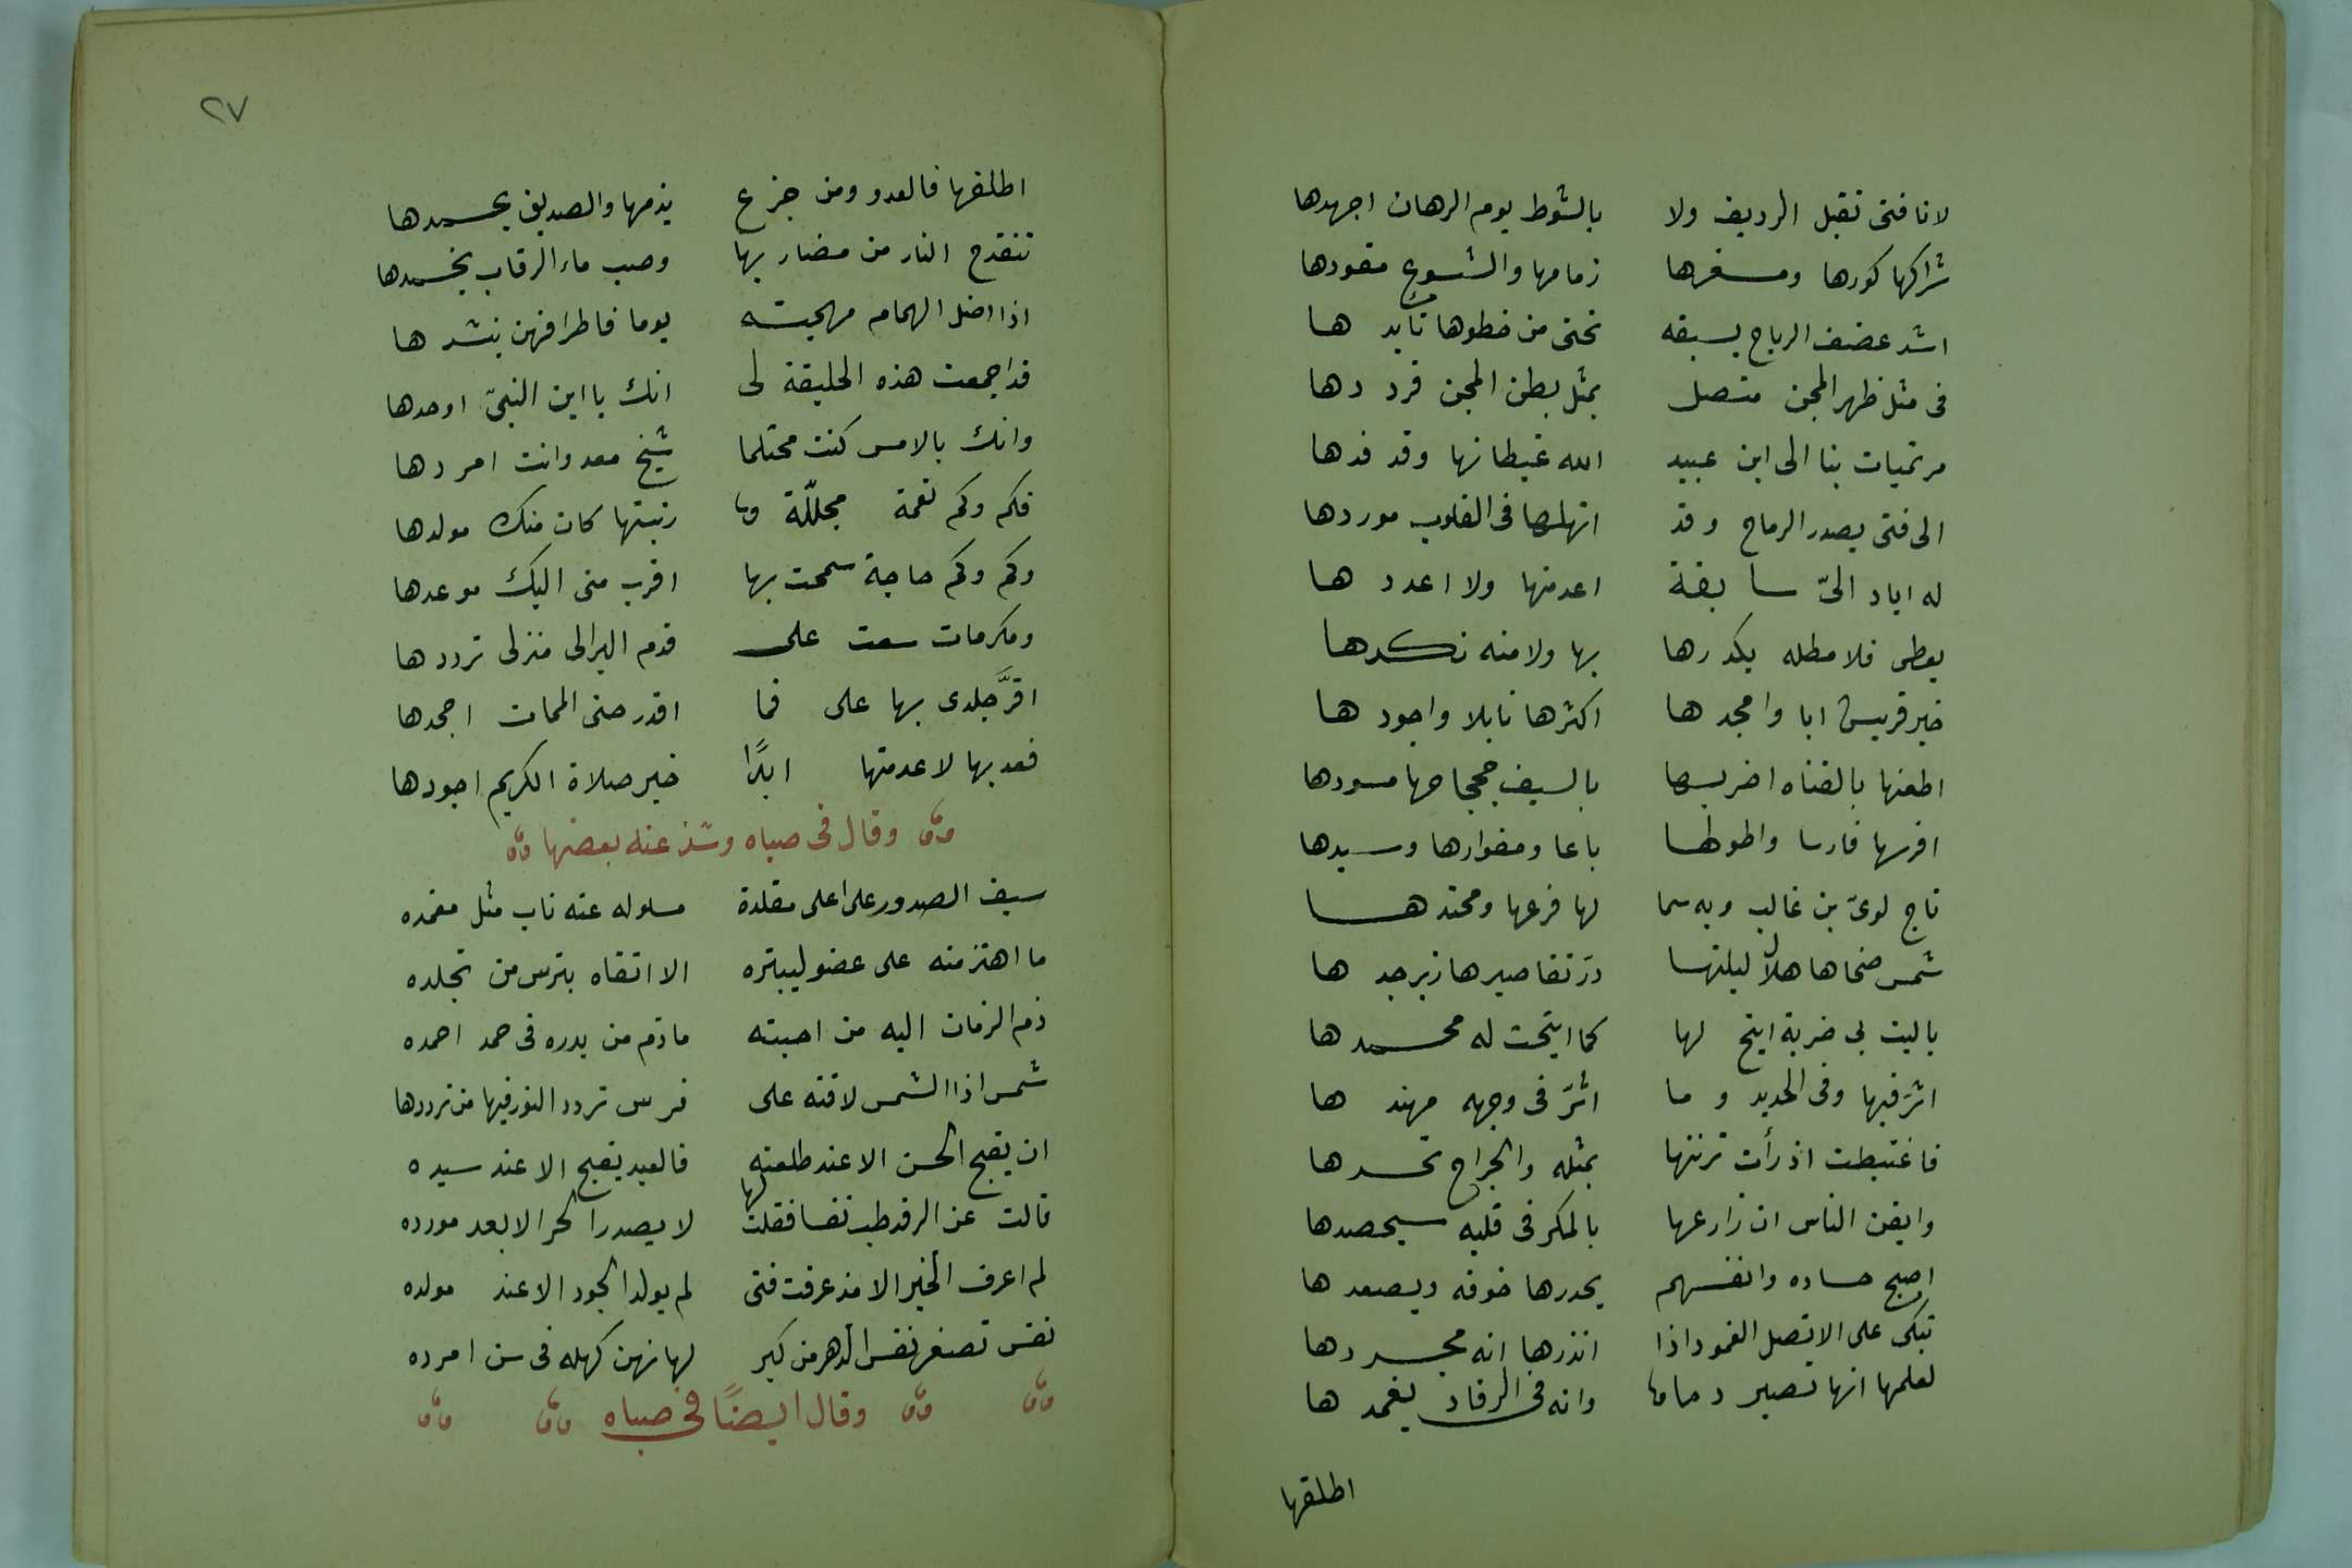 لا نافتى تقبل الرديف ولا بالشوط يوم الرهان اجهدها
شراكها كورها ومسفرها زمامها والشسوع مقودها
اشد عصف الرياح يسبقه تحتى من خطوها تأيدها
فى مثل ظهر المجن متصل بمثل بطن المجن قرددها
مرتميات بنا الى ابن عبيد الله غيطانها وقد فدها
الى فتى يصدر الرماح وقد انهلها فى القلوب موردها
له اياد الىّ سابقة اعد منها ولا اعددها
يعطى فلا مطله يكدرها بها ولا منه نكدها
خير قريش ابا وامجدها اكثرها نايلا واجودها
اطعنها بالقناه اضربها بالسيف جحجاحها مسودها
افرسها فارسا واطولها باعا ومغوارها وسيدها
تاج لوىّ بن غالب وبه سما لها فرعها ومحتدها
شمس ضحاها هلال ليلتها درّ تقاصيرها زبرجدها
ياليت بى ضربة اتيح لها كما اتيحت له محمدها
اثرّ فيها وفى الحديد وما اثرّ فى وجهه مهندها
فاغتبطت اذ رأت تزينها بمثله والجراح تحسدها
وايقن الناس ان زارعها بالمكر فى قلبه سيحصدها
اصبح حساده وانفسهم يحدرها خوفه ويصعدها
تبكى على الانصل الغمود اذا انذرها انه يجردها
لعلمها انها تصير دماما وانه فى الرقاب يغمدها
اطلقها
٢٧
اطلقها فالعدو ومن جزع يذمها والصديق يحمدها
تنقدح النار من مضاربها وصب ماء الرقاب يخمدها
اذا اضل الهمام مهجته يوما فاطرافهن ينشدها
قد اجمعت هذه الخليقة لى انك يا ابن النبىّ اوحدها
وانك بالامس كنت محتلما شيخ معد وانت امردها
فكم وكم نعمة مجللّة وما ربيتها كان منك مولدها
وكم وكم حاجة سمحت بها اقرب منى اليك موعدها
ومكرمات سعت على قدم البر الى منزلى ترددها
اقرَّ جلدى بها على فما اقدر حتى الممات اجحدها
فعد بها لا عدمتها ابدًا خير صلاة الكريم اجودها
وقال فى صباه وشذ عنه بعضها
سيف الصدور على اعلى مقلدة مسلوله عنه ناب مثل مغمده
ما اهتز منه على عضو ليبتره الا اتقاه بترس من تجلده
ذم الزمان اليه من احبته ماذم من بدره فى حمد احمده
شمس اذا الشمس لاقته على فرس تردد النور فيها من ترددها
ان يقبح الحسن الا عند طلعته فالعبد يقبح الا عند سيده
قالت عن الرفد طب نفسا فقلت لها لا يصدر الحر الا بعد مورده
لم اعرف الخير الا مذ عرفت فتى لم يولد الجود الا عند مولده
نفس تصغر نفس الدهر من كبر لها نهى كهله فى سن امرده
وقال ايضًا فى صباه